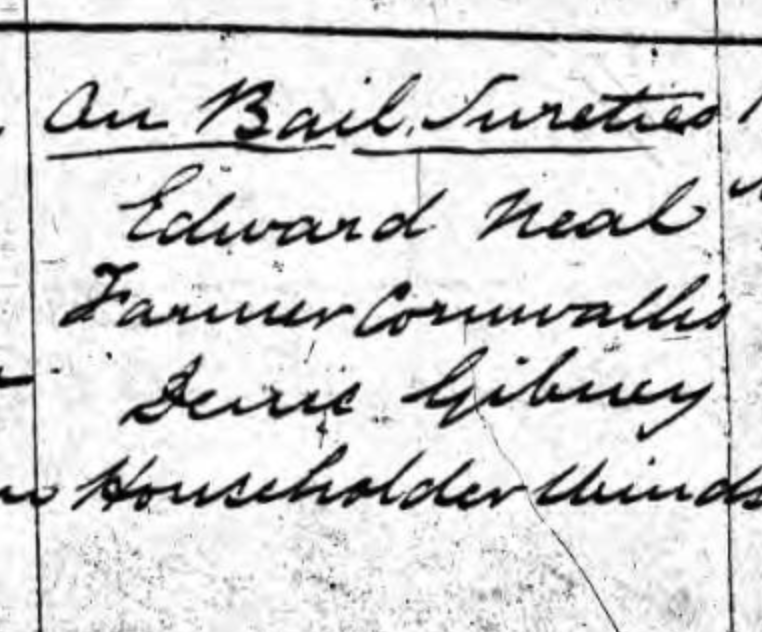 On Bail. Sureties
Edward Neal
Farmer Cornwallis
Denis Gibney
Householder Winds